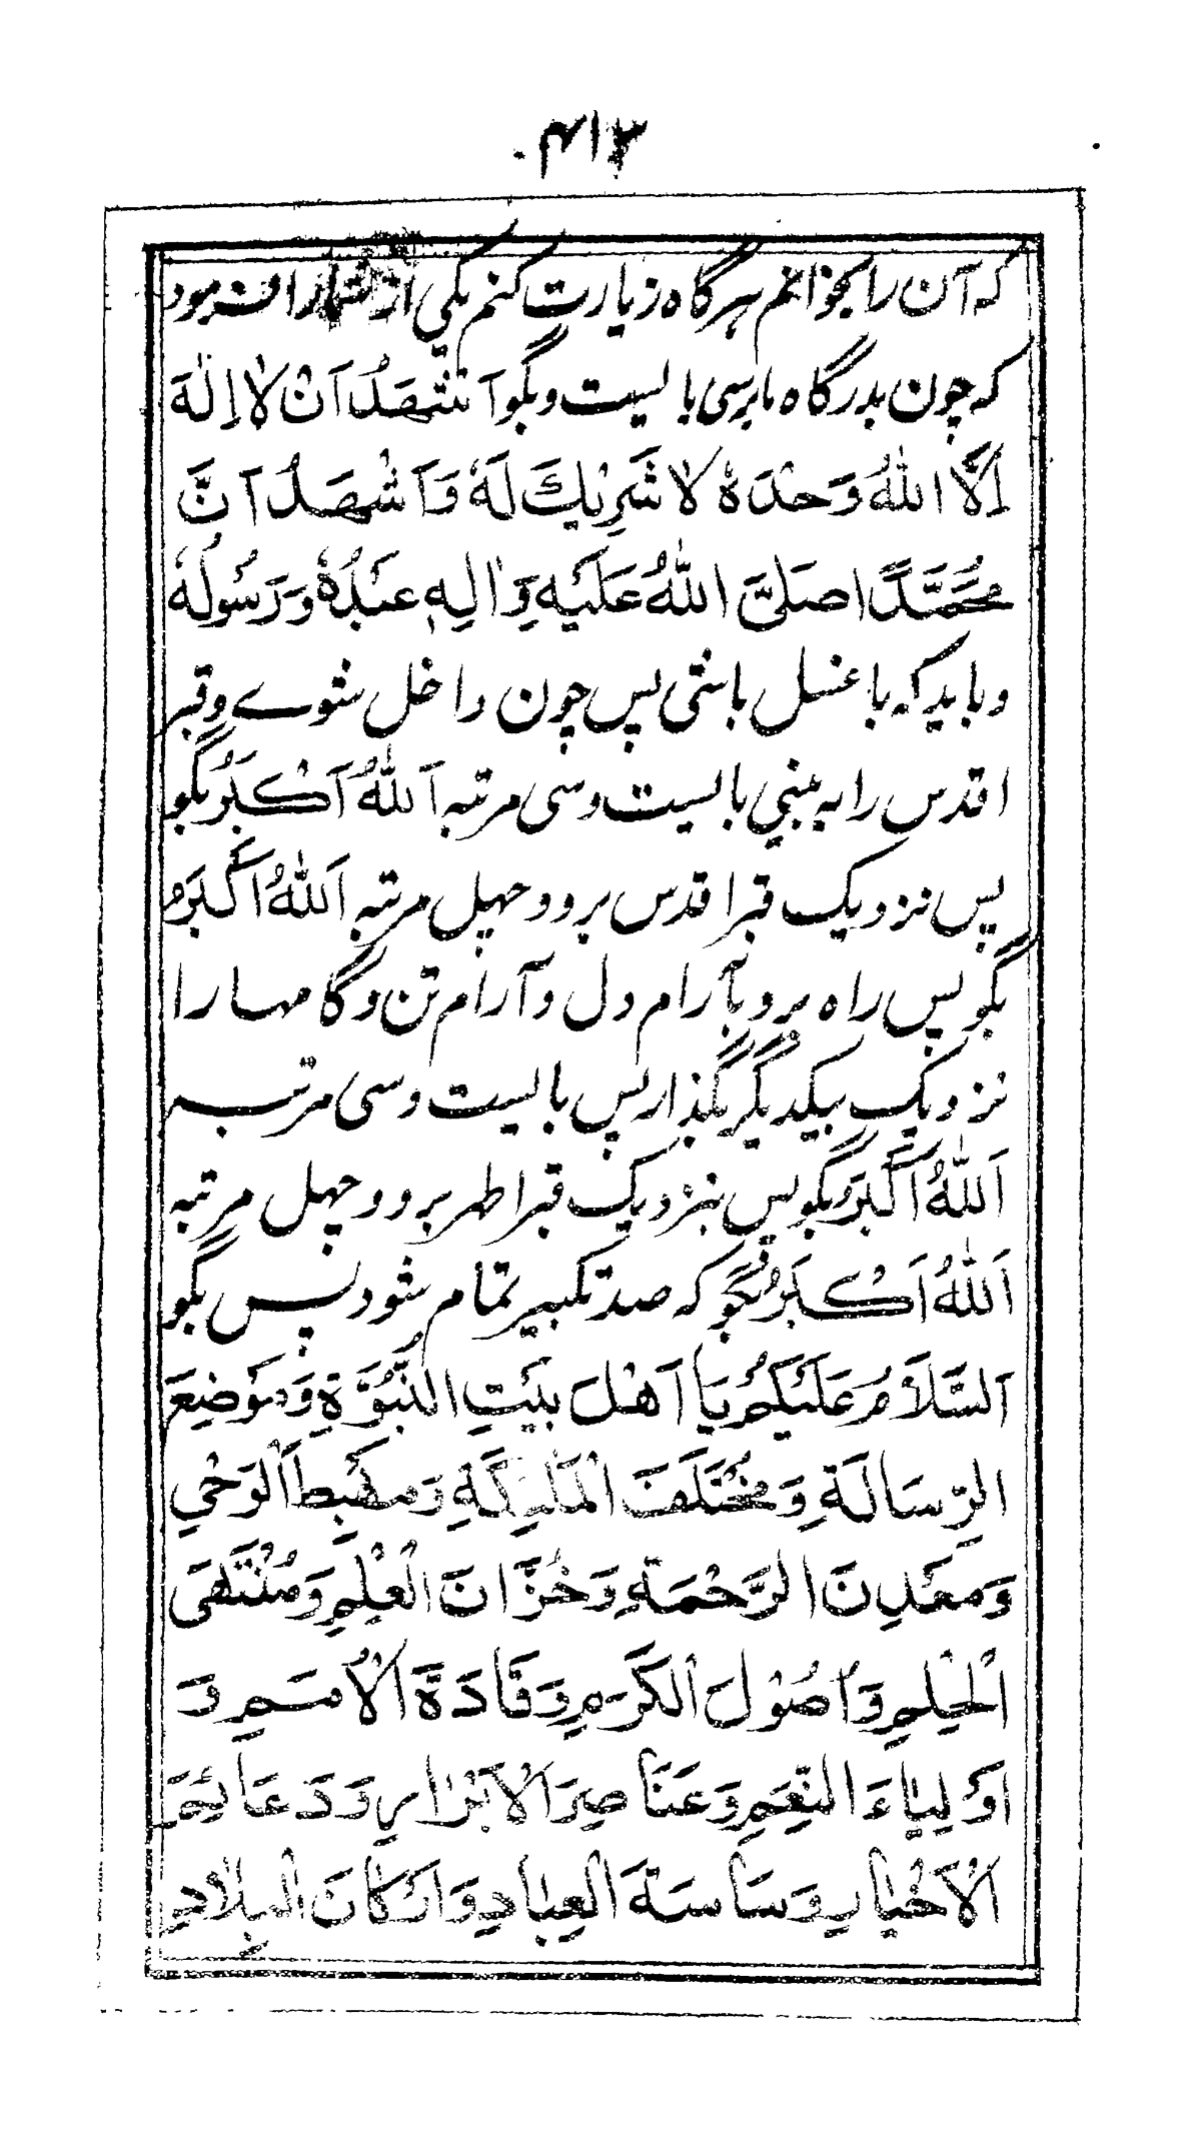 ۴۱۳
که آن را بخوانم هرگاه زیارت کنم یکی از شما را فرمود
که چون بدرگاه ما برسی بالیست و بگو اَشْهَدُ اَنْ لاٰ اِلٰهَ
اِلَّا اللّٰهُ وَحْدَهٗ لاٰ شَرِیْكَ لَهٗ وَ اَشْهَدُ اَنَّ
مُحَمَّدًا صَلَّی اللّٰهُ عَلَیْهِ وَ اٰلِهٖ عَبْدُهٗ وَ رَسُولُهٗ
و باید که با غسل باشی پس چون داخل شوے و قبر
اقدس را به بینی بالیست و سی مرتبه اَللّٰهُ اَکْبَرُ بگو
پس نزدیک قبر اقدس برو و چهل مرتبه اَللّٰهُ اَکْبَرُ
بگو پس راه برو بآرام دل و آرام تن و گامها را
نزدیک بیکدیگر بگذار پس بالیست و سی مرتبه
اَللّٰهُ اَکْبَرُ بگو پس بنزدیک قبر اطهر برو و چهل مرتبه
اَللّٰهُ اَکْبَرُ بگو که صد تکبیر تمام شود پس بگو
اَلسَّلاَمُ عَلَیْکُمْ یَا اَهْلَ بَیْتِ النُّبُوَّةِ وَ مَوْضِعَ
الرِّسَالَةِ وَ مُخْتَلَفَ الْمَلٰئِکَةِ وَ مَهْبِطَ الْوَحْیِ
وَ مَعْدِنَ الرَّحْمَةِ وَ خُزَّانَ الْعِلْمِ وَ مُنْتَهَی
الْحِلْمِ وَ اُصُوْلَ الْکَرَمِ وَ قَادَةَ الْاُمَمِ وَ
اَوْلِیَاءَ النِّعَمِ وَ عَنَاصِرَ الْاَبْرَارِ وَ دَعَائِمَ
الْاَخْیَارِ وَ سَاسَةَ الْعِبَادِ وَ اَرْکَانَ الْبِلاَدِ